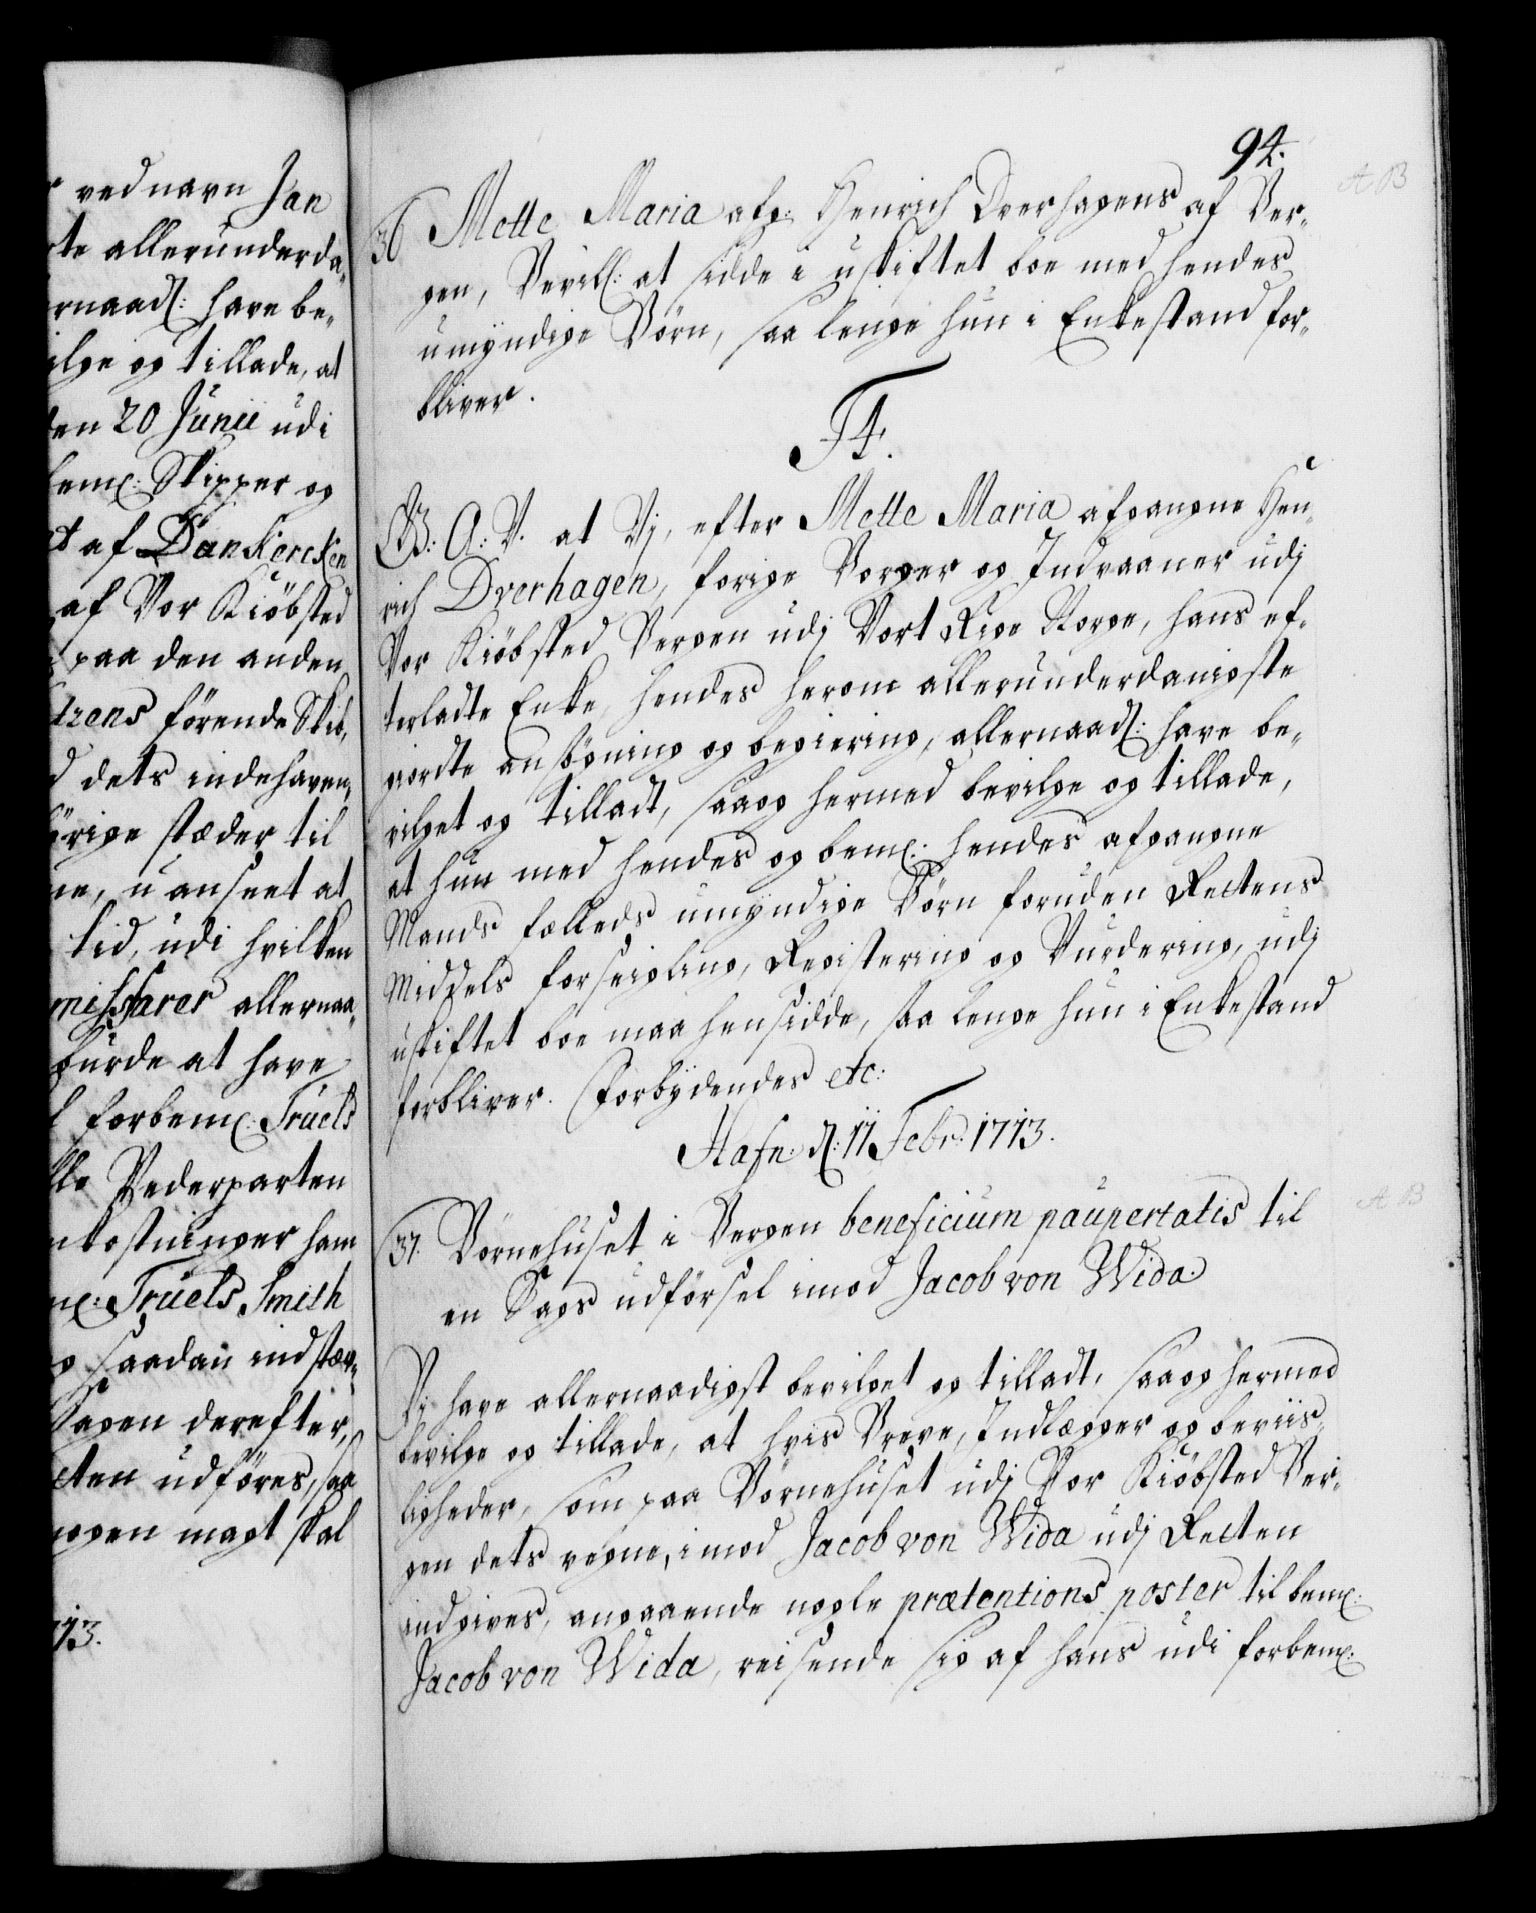 ved navn Jan
te allerunderda„
rnaadl: have be„
ilge og tillade, at
den 20 Junii udi
bemt: Skipper og
t af Dankercken
af Vor Kiöbsted
paa den anden
trens förende Skib,
d dets indehaven„
örige stæder til
ne, uanseet at
tid, udi hvilken
missarer allernaa„
burde at have
l forbemt: Truels
lle Vederparten
nkostninger ham
mt: Truels Smith
g saadan indstæv„
Sagen derefter,
cten udföres, saa
nogen magt skal
713.
94.
A B
36 Mette Maria afg: Henrich Dverhagens af Ber„
gen, Bevill: at sidde i uskiftet boe med hendes
umyndige Börn, saa lenge hun i Enkestand for„
bliver.
F4.
G: A: V. at Vj, efter Mette Maria afgangne Hen„
rich Dverhagen, forige Borger og Indvaaner udj
Vor Kiöbsted Bergen udj Vort Rige Norge, hans ef„
terladte Enke, hendes herom allerunderdanigste
giordte ansögning og begiering, allernaadl: have be„
vilget og tilladt, saa og hermed bevilge og tillade,
at hun med hendes og bemt: hendes afgangne
Mands fælleds umyndige Börn foruden Rettens
Middels forseigling, Registering og Vurdering, udj
uskiftet boe maa hensidde, saa lenge hun i Enkestand
forbliver. Forbydendes etc:
Hafn: d: 11 Febr: 1713.
A B
37. Börnehuset i Bergen beneficium paupertatis til
en Sags udförsel imod Jacob von Wida.
Vj have allernaadigst bevilget og tilladt, saa og hermed
bevilge og tillade, at hvis Breve, Indlægger og beviis„
ligheder, som paa Börnehuset udj Vor Kiöbsted Ber„
gen dets vegne, imod Jacob von Wida udj Retten
indgives, angaaende nogle prætentions poster til bemt:
Jacob von Wida, reisende sig af hans udi forbemt: